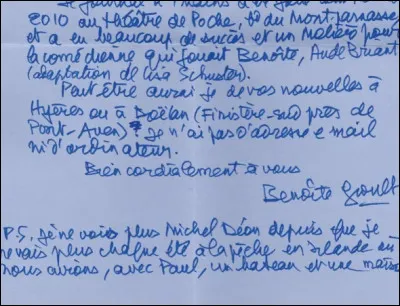 2010 au théâtre de Poche, bd du Montparnasse,
et a eu beaucoup de succès et un Molière pour
la comédienne qui jouait Benoîte, Aude Briant
(adaptation de Lisa Schuster).
Peut être aurai je de vos nouvelles à
Hyères ou à Doëlan (Finistère-sud près de
Pont-Aven)? Je n'ai pas d'adresse e mail
ni d'ordinateur.
Bien cordialement à vous
Benoîte Groult
P.S. Je ne vois plus Michel Déon depuis que je
ne vais plus chaque été à la pêche en Irlande où
nous avions, avec Paul, un bateau et une maison